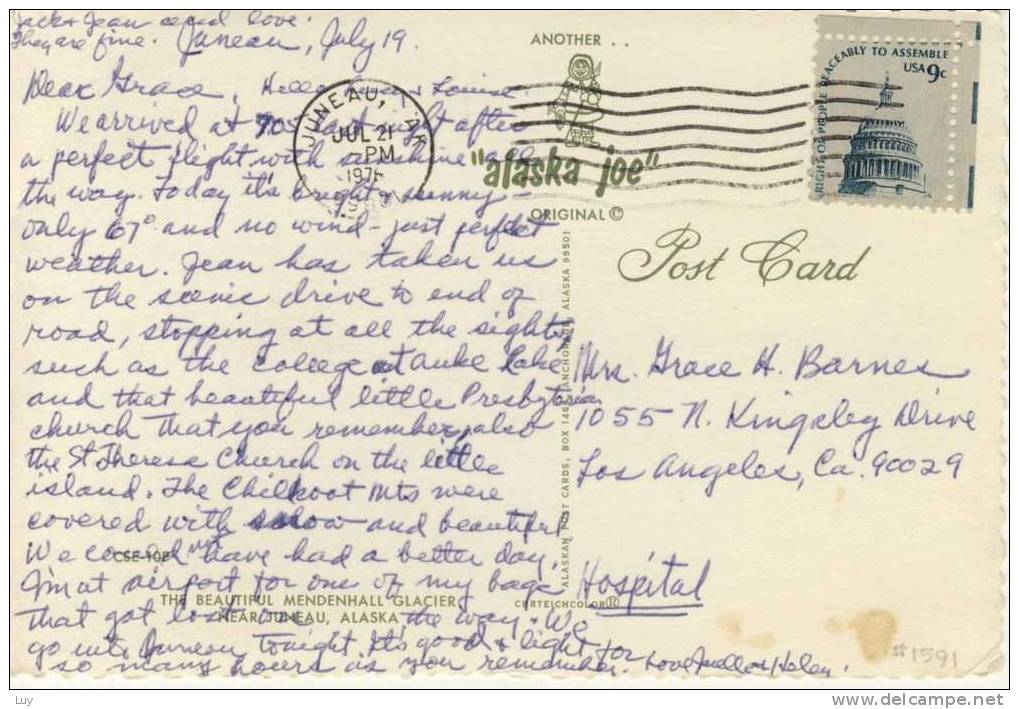 Jack & Jean send love.
They are fine. Juneau, July 19.
Dear Grace, Hello & Louise.
We arrived at 705 last night after
a perfect flight with sunshine all
the way. Today it's bright & sunny -
only 67° and no wind - just perfect
weather. Jean has taken us
on the scenic drive to end of
road, stopping at all the sights
such as the college at Auke Lake
and that beautiful little Presbyterian
church that you remember, also
the St Theresa Church on the little
island. The Chilkoot Mts were
covered with snow and beautiful
We could not have had a better day.
I'm at airport for one of my bags
that got lost on the way. We
go into Juneau tonight. It's good & light for
so many hours as you remember. Love Helen.
ANOTHER . .
"alaska joe"
ORIGINAL ©
JUNEAU, AK
JUL 21
PM
RIGHT OF PEOPLE PEACEABLY TO ASSEMBLE
USA 9c
Post Card
ALASKAN POST CARDS, BOX ANCHORAGE, ALASKA 99501
Mrs. Grace H. Barnes
1055 N. Kingsley Drive
Los Angeles, Ca. 90029
Hospital
CSE-108
THE BEAUTIFUL MENDENHALL GLACIER
NEAR JUNEAU, ALASKA
CURTEICHCOLOR®
#1591
Luy